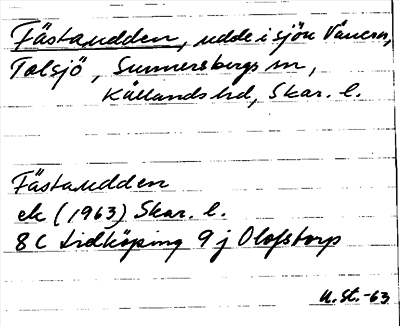 Fästaudden, udde i sjön Vänern,
Talsjö, Sunnersbergs sn,
Kållands hd, Skar. l.
Fästaudden
ek (1963) Skar. l.
8 C Lidköping 9 j Olofstorp
U. St. -63